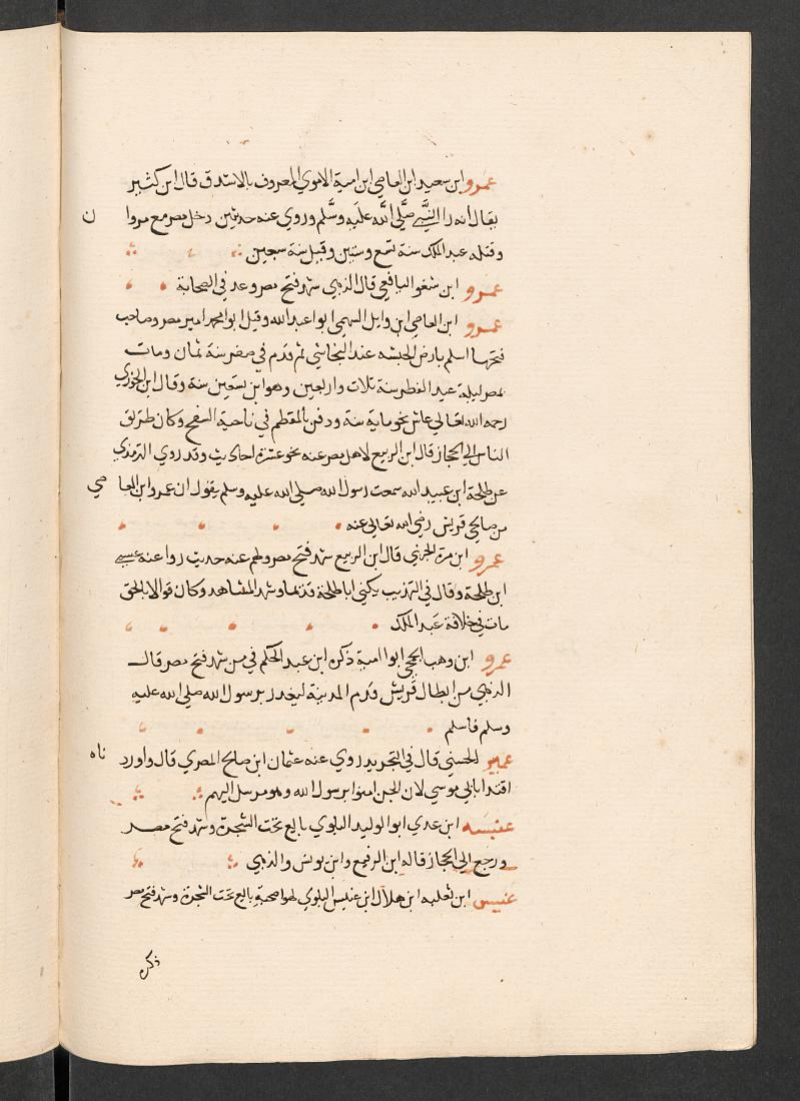 عمرو ابن سعيد ابن العاصي ابن امية الاموي المعروف بالاشدق قال ابن كثير
يقال انه راا النبي صلَّي الله عليَه وسَّلم وروي عنه حديثين دخل مصر مع مروا ن
وقتله عبد الملك سنة تسع وستين وقيل سنة سبعين
عمرو ابن شغو اليافعي قال الذهبي شهد فتح مصر وعد في الصحابة
عمرو ابن العاصي ابن وايل السهمي ابوا عبد الله وقيل ابوا محمد امير مصر وصاحب
فتحها اسلم بارض الحبشه عند النجاشي ثم قدم في صفر سنة ثمان ومات
بمصر ليلة عيد الفطر سنة ثلات واربعين وهو ابن تسعين سنة وقال ابن الجوزي
رحمه الله تعالي عاش نحو ماية سنة ودفن بالمقطم في ناحية السفح وكان طريق
الناس الي الحجاز قال ابن الربيع لاهل مصر عنه نحو عشرة احاديث وقد روي الترمذي
عن طلحة ابن عبيد الله سمعت رسول الله صلي الله عليه وسلم يقول ان عمروا ابن العا صي
من صالحي قريش رضي الله تعالي عنه
عمرو ابن مرة الجهني قال ابن الربيع شهد فتح مصر ولهم عنه حديث روا عنه عيسي
ابن طلحة وقال في التهذيب يكني ابا طلحة قديما وشهد المشاهد وكان قوالا بالحق
مات في خلافة عبد الملك
عمرو ابن وهب الجمحي ابوا امية ذكره ابن عبد الحكم في من شهد فتح مصر قال
الذهبي من ابطال قريش قدم المدينة ليغدر برسول الله صلي الله عليه
وسلم فاسلم
عمير الحسني قال في التجريد روي عنه عثمان ابن صالح المصري قال واورد ناه
اقتدا بابي موسي لان الجن امنوا برسول الله وهو مرسل اليهم
عنبسه ابن عدي ابو الوليد البلوي بايع تحت الشجرة وشهد فتح مصر
ورجع الي الحجاز قاله ابن الربيع وابن يونس والذهبي
عنيس ابن ثعلبه ابن هلال ابن عنيس البلوي لهوا صحبة بايع تحت الشجرة وشهد فتح مصر
ذكره